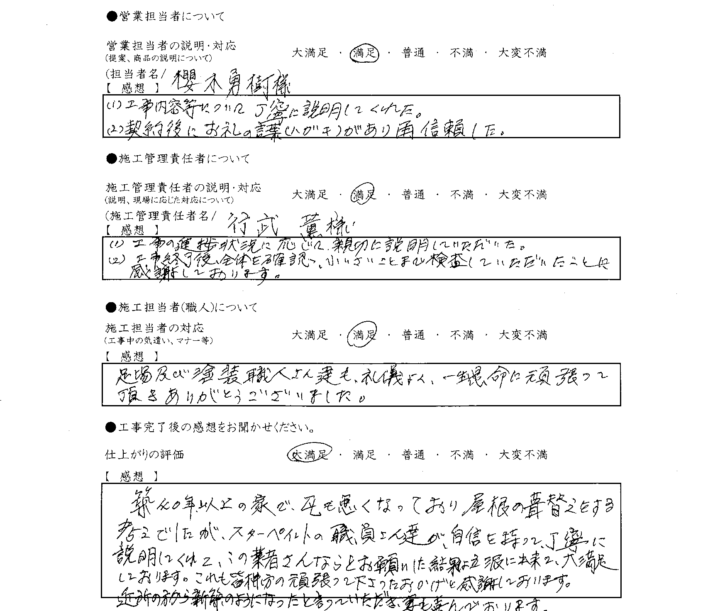 ●営業担当者について
営業担当者の説明・対応
(提案、商品の説明について)
大満足 ・ 満足 ・ 普通 ・ 不満 ・ 大変不満
(担当者名/ 櫻木勇樹様
【 感想 】
(1)工事内容等について丁寧に説明してくれた。
(2)契約後にお礼の言葉(ハガキ)があり再信頼した。
●施工管理責任者について
施工管理責任者の説明・対応
(説明、現場に応じた対応について)
大満足 ・ 満足 ・ 普通 ・ 不満 ・ 大変不満
(施工管理責任者名/ 行武 薫様
【 感想 】
(1)工事の進捗状況に応じて、親切に説明していただいた。
(2)工事終了後、全体を確認し、小さいことまで検査していただいたことに
感謝しております。
●施工担当者(職人)について
施工担当者の対応
(工事中の気遣い、マナー等)
大満足 ・ 満足 ・ 普通 ・ 不満 ・ 大変不満
【 感想 】
足場及び塗装職人さん達も、礼儀よく、一生懸命に頑張って
頂きありがとうございました。
●工事完了後の感想をお聞かせください。
仕上がりの評価
大満足 ・ 満足 ・ 普通 ・ 不満 ・ 大変不満
【 感想 】
築40年以上の家で、瓦も悪くなっており屋根の葺替えをする
考えでしたが、スターペイントの職員さん達が、自信を持って、丁寧に
説明してくれて、この業者さんならとお願いした結果立派に出来て、大満足
しております。これも皆様方の頑張って下さったおかげと感謝しております。
近所の方から新築のようになったと言っていただき、妻も喜んでおります。